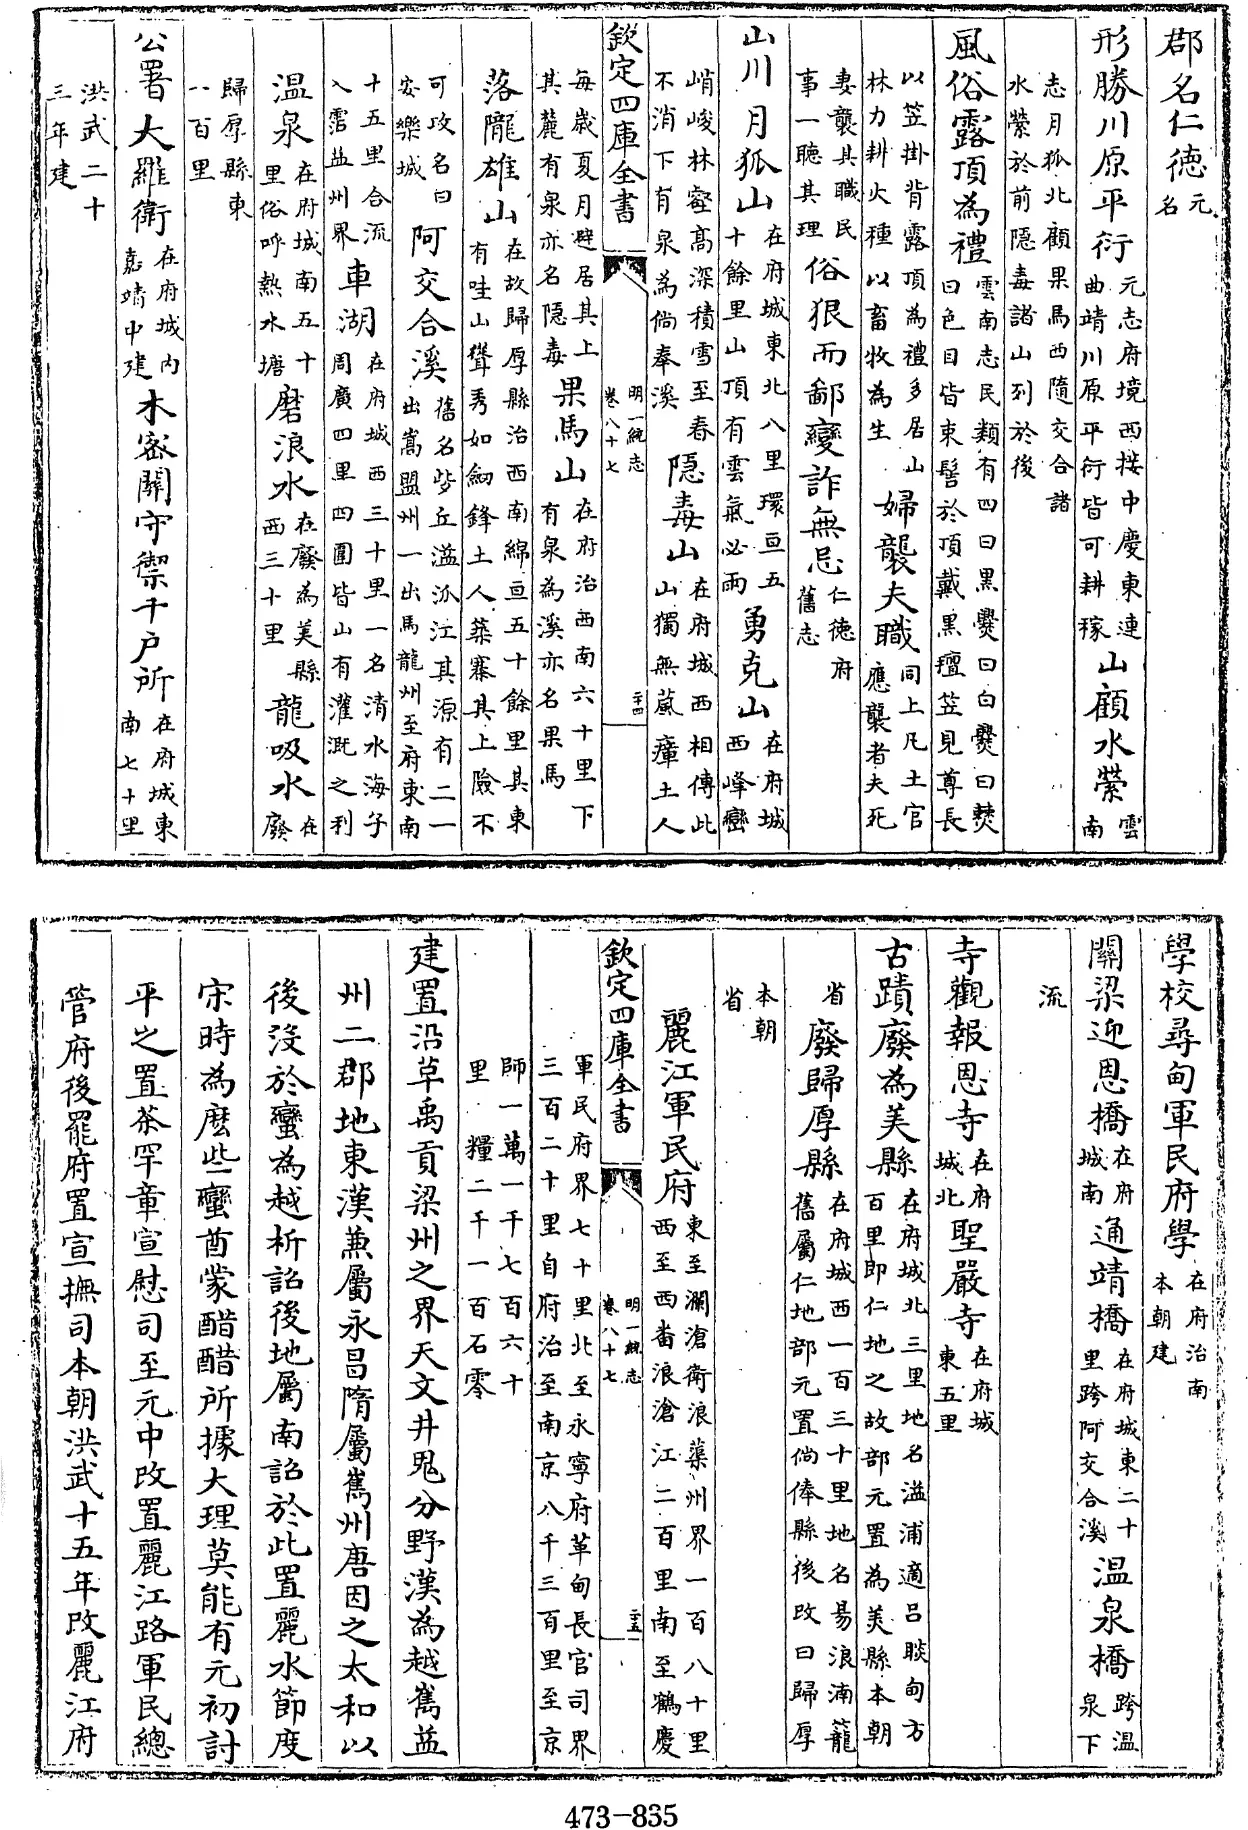 郡名仁徳元名
形勝川原平衍元志府境西接中慶東連曲靖川原平衍皆可耕稼山顧水縈雲南
志月狐北顧果馬西隨交合諸水縈於前隠毒諸山列於後
風俗露頂為禮雲南志民類有四曰黑爨曰白爨曰僰曰色目皆束髻於頂戴黑氊笠見尊長
以笠掛背露頂為禮多居山林力耕火種以畜牧為生婦襲夫職同上凡土官應襲者夫死
妻襲其職民事一聽其理俗狠而鄙變詐無忌仁徳府舊志
山川月狐山在府城東北八里環亘五十餘里山頂有雲氣必雨勇克山在府城西峰巒
峭峻林密高深積雪至春不消下有泉為倘奉溪隠毒山在府城西相傳此山獨無嵐瘴土人
欽定四庫全書 明一統志卷八十七 二十四
每歲夏月避居其上其麓有泉亦名隠毒果馬山在府治西南六十里下有泉為溪亦名果馬
落隴雄山在故歸厚縣治西南綿亘五十餘里其東有哇山聳秀如劍鋒土人築寨其上險不
可攻名曰安樂城阿交合溪舊名些丘溢派江其源有二一出嵩盟州一出馬龍州至府東南
十五里合流入霑益州界車湖在府城西三十里一名清水海子周廣四里四圍皆山有灌溉之利
温泉在府城南五十里俗呼熱水塘磨浪水在廢為美縣西三十里龍吸水在廢
歸厚縣東一百里
公署大羅衛在府城内嘉靖中建木密關守禦千户所在府城東南七十里
洪武二十三年建
學校尋甸軍民府學在府治南本朝建
關梁迎恩橋在府城南通靖橋在府城東二十里跨阿交合溪温泉橋跨温泉下
流
寺觀報恩寺在府城北聖嚴寺在府城東五里
古蹟廢為美縣在府城北三里地名溢浦適吕睒甸方百里即仁地之故部元置為美縣本朝
省廢歸厚縣在府城西一百三十里地名易浪湳籠舊屬仁地部元置倘俸縣後改曰歸厚
本朝省
麗江軍民府東至瀾滄衛浪蕖州界一百八十里西至西番浪滄江二百里南至鶴慶
欽定四庫全書 明一統志卷八十七 二十五
軍民府界七十里北至永寧府革甸長官司界三百二十里自府治至南京八千三百里至京
師一萬一千七百六十里糧二千一百石零
建置沿革禹貢梁州之界天文井鬼分野漢為越嶲益
州二郡地東漢兼屬永昌隋屬嶲州唐因之太和以
後没於蠻為越析詔後地屬南詔於此置麗水節度
宋時為麽些蠻酋蒙醋醋所據大理莫能有元初討
平之置茶罕章宣慰司至元中改置麗江路軍民總
管府後罷府置宣撫司本朝洪武十五年改麗江府
473-835